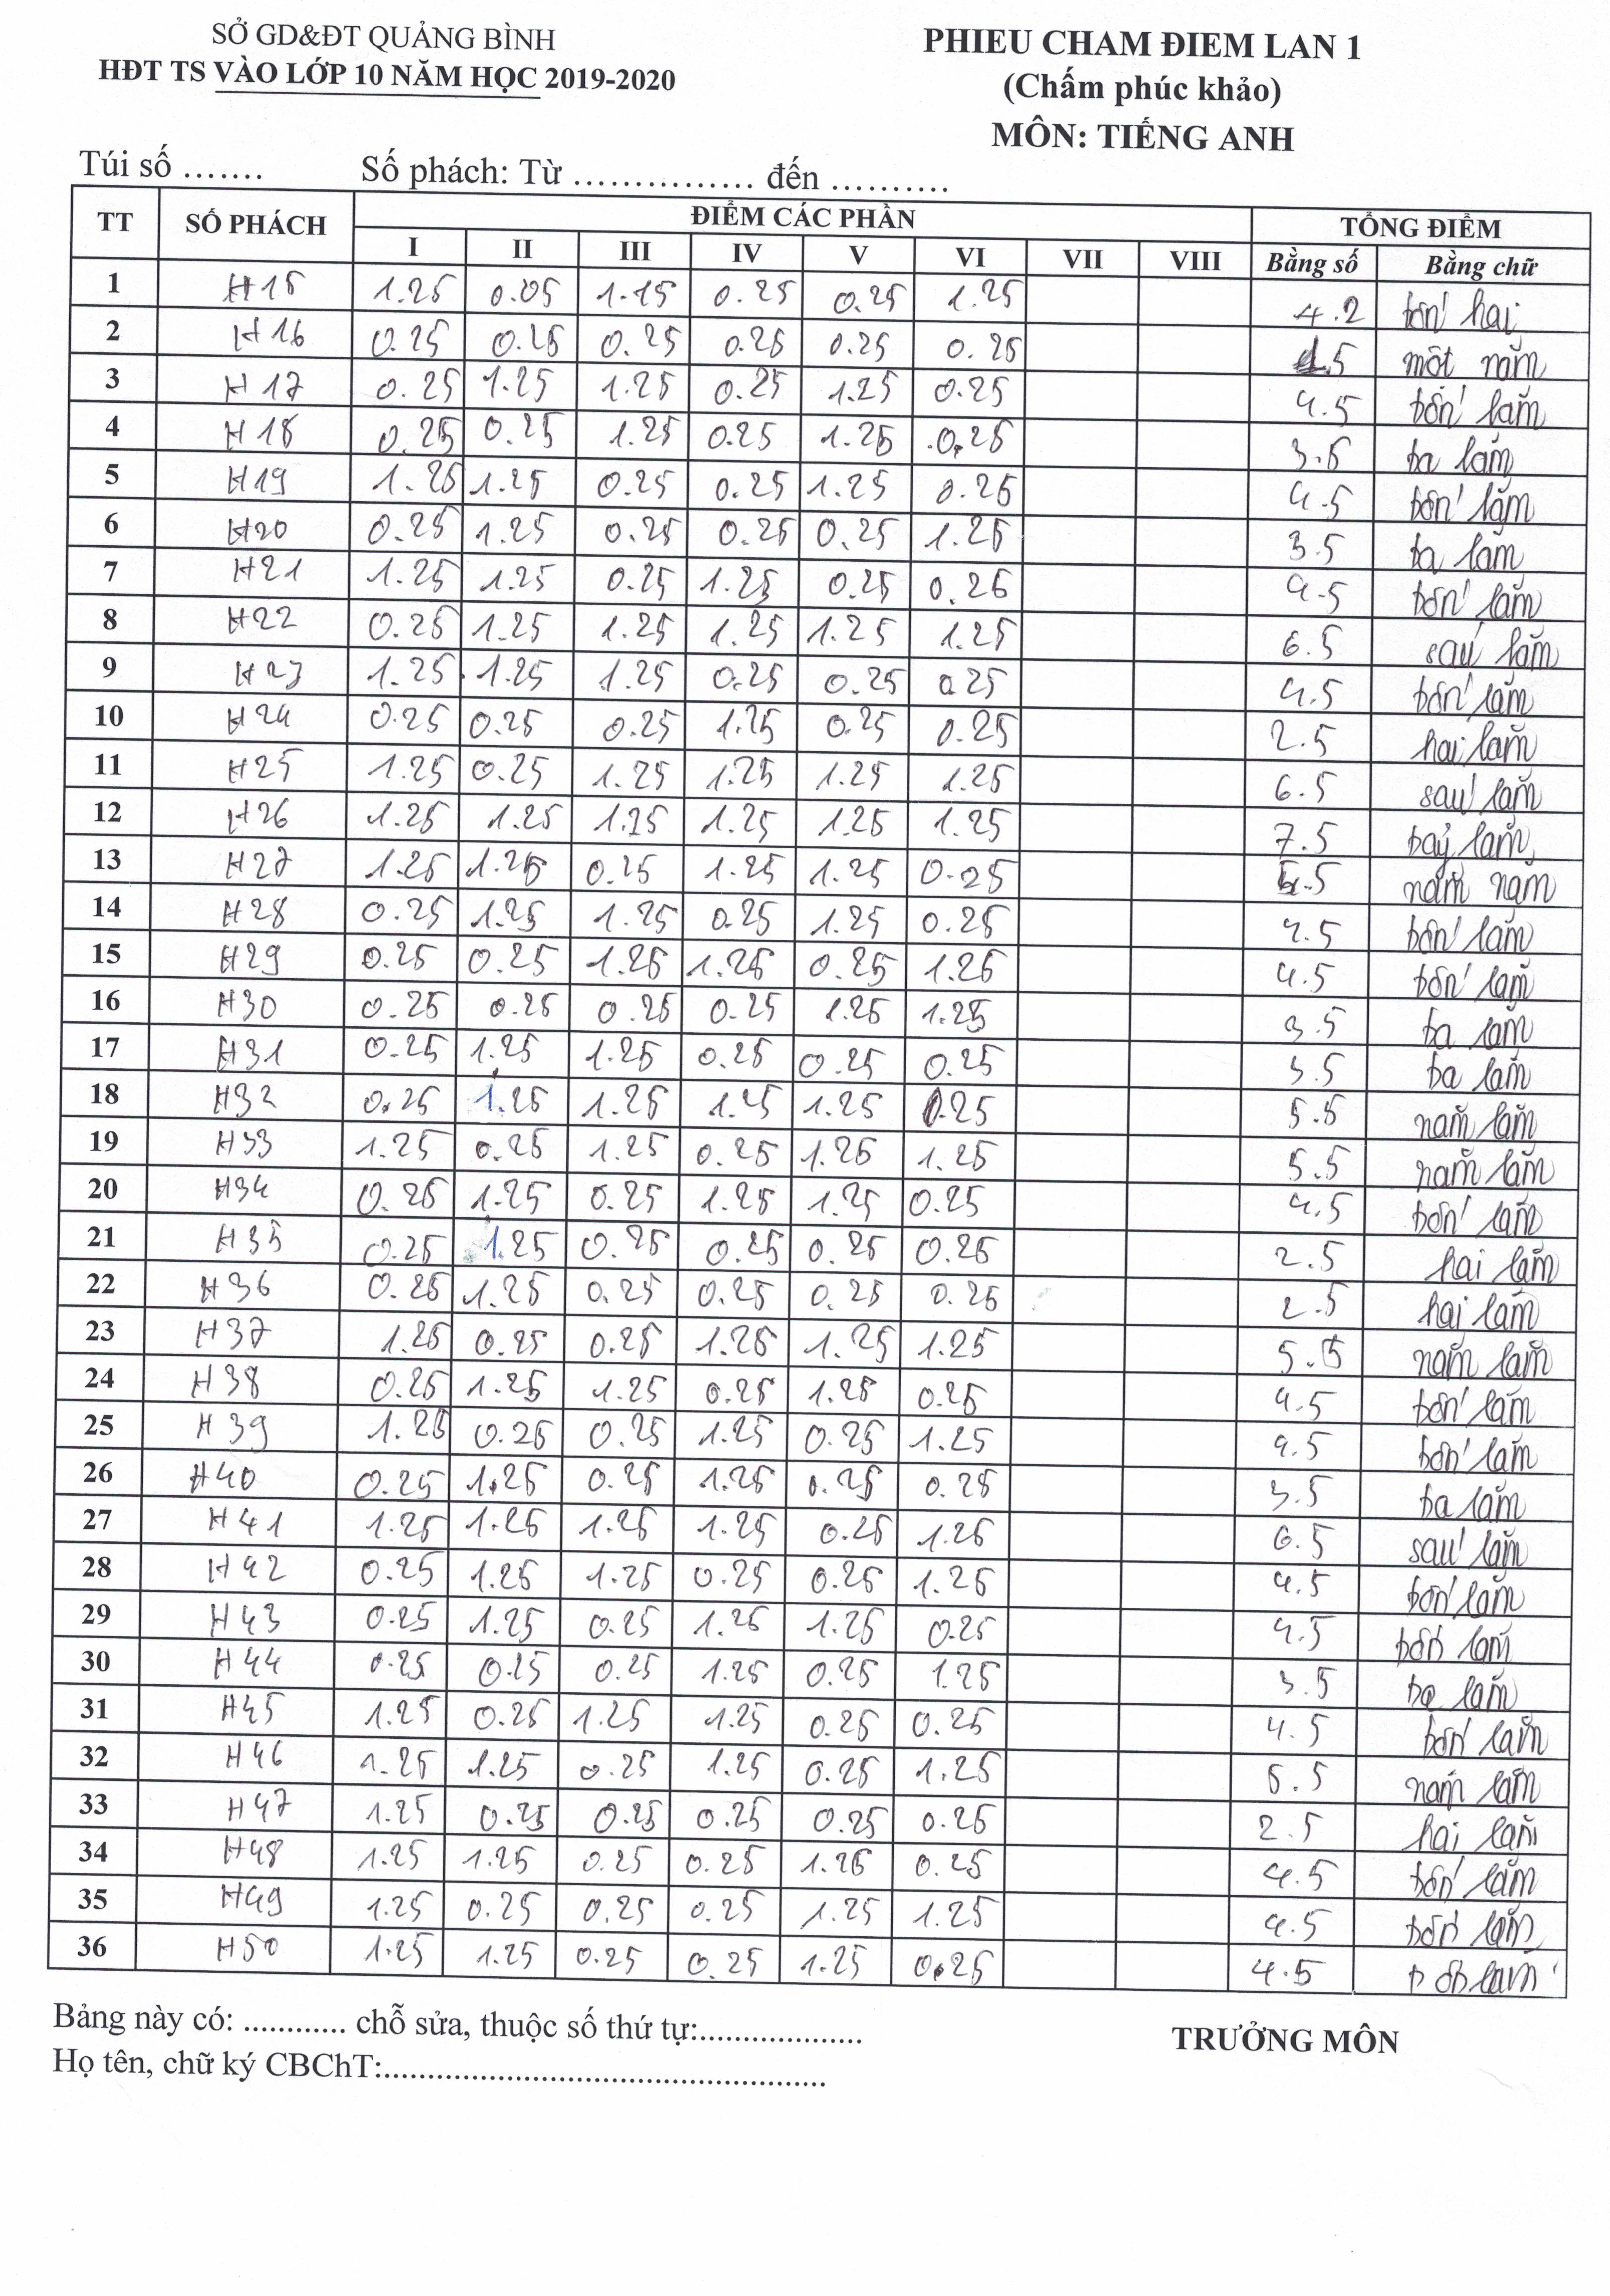 SỞ GD&ĐT QUẢNG BÌNH
HĐT TS VÀO LỚP 10 NĂM HỌC 2019-2020
PHIEU CHAM ĐIEM LAN 1
(Chấm phúc khảo)
MÔN: TIẾNG ANH
Túi số ....... Số phách: Từ ................ đến ..........
TT SỐ PHÁCH ĐIỂM CÁC PHẦN TỔNG ĐIỂM
I II III IV V VI VII VIII Bằng số Bằng chữ
1 H15 1.25 0.05 1.15 0.25 0.25 1.25 4.2 bốn hai
2 H16 0.25 0.25 0.25 0.25 0.25 0.25 1.5 một năm
3 H17 0.25 1.25 1.25 0.25 1.25 0.25 4.5 bốn lăm
4 H18 0.25 0.25 1.25 0.25 1.25 0.25 3.5 ba lăm
5 H19 1.25 1.25 0.25 0.25 1.25 0.25 4.5 bốn lăm
6 H20 0.25 1.25 0.25 0.25 0.25 1.25 3.5 ba lăm
7 H21 1.25 1.25 0.25 1.25 0.25 0.25 4.5 bốn lăm
8 H22 0.25 1.25 1.25 1.25 1.25 1.25 6.5 sáu lăm
9 H23 1.25 1.25 1.25 0.25 0.25 0.25 4.5 bốn lăm
10 H24 0.25 0.25 0.25 1.25 0.25 0.25 2.5 hai lăm
11 H25 1.25 0.25 1.25 1.25 1.25 1.25 6.5 sáu lăm
12 H26 1.25 1.25 1.25 1.25 1.25 1.25 7.5 bảy lăm
13 H27 1.25 1.25 0.25 1.25 1.25 0.25 5.5 năm năm
14 H28 0.25 1.25 1.25 0.25 1.25 0.25 4.5 bốn lăm
15 H29 0.25 0.25 1.25 1.25 0.25 1.25 4.5 bốn lăm
16 H30 0.25 0.25 0.25 0.25 1.25 1.25 3.5 ba lăm
17 H31 0.25 1.25 1.25 0.25 0.25 0.25 3.5 ba lăm
18 H32 0.25 1.25 1.25 1.25 1.25 0.25 5.5 năm lăm
19 H33 1.25 0.25 1.25 0.25 1.25 1.25 5.5 năm lăm
20 H34 0.25 1.25 0.25 1.25 1.25 0.25 4.5 bốn lăm
21 H35 0.25 1.25 0.25 0.25 0.25 0.25 2.5 hai lăm
22 H36 0.25 1.25 0.25 0.25 0.25 0.25 2.5 hai lăm
23 H37 1.25 0.25 0.25 1.25 1.25 1.25 5.5 năm lăm
24 H38 0.25 1.25 1.25 0.25 1.25 0.25 4.5 bốn lăm
25 H39 1.25 0.25 0.25 1.25 0.25 1.25 4.5 bốn lăm
26 H40 0.25 1.25 0.25 1.25 0.25 0.25 3.5 ba lăm
27 H41 1.25 1.25 1.25 1.25 0.25 1.25 6.5 sáu lăm
28 H42 0.25 1.25 1.25 0.25 0.25 1.25 4.5 bốn lăm
29 H43 0.25 1.25 0.25 1.25 1.25 0.25 4.5 bốn lăm
30 H44 0.25 0.25 0.25 1.25 0.25 1.25 3.5 ba lăm
31 H45 1.25 0.25 1.25 1.25 0.25 0.25 4.5 bốn lăm
32 H46 1.25 1.25 0.25 1.25 0.25 1.25 5.5 năm lăm
33 H47 1.25 0.25 0.25 0.25 0.25 0.25 2.5 hai lăm
34 H48 1.25 1.25 0.25 0.25 1.25 0.25 4.5 bốn lăm
35 H49 1.25 0.25 0.25 0.25 1.25 1.25 4.5 bốn lăm
36 H50 1.25 1.25 0.25 0.25 1.25 0.25 4.5 bốn lăm
Bảng này có: ............ chỗ sửa, thuộc số thứ tự:...................
Họ tên, chữ ký CBChT:....................................................
TRƯỞNG MÔN